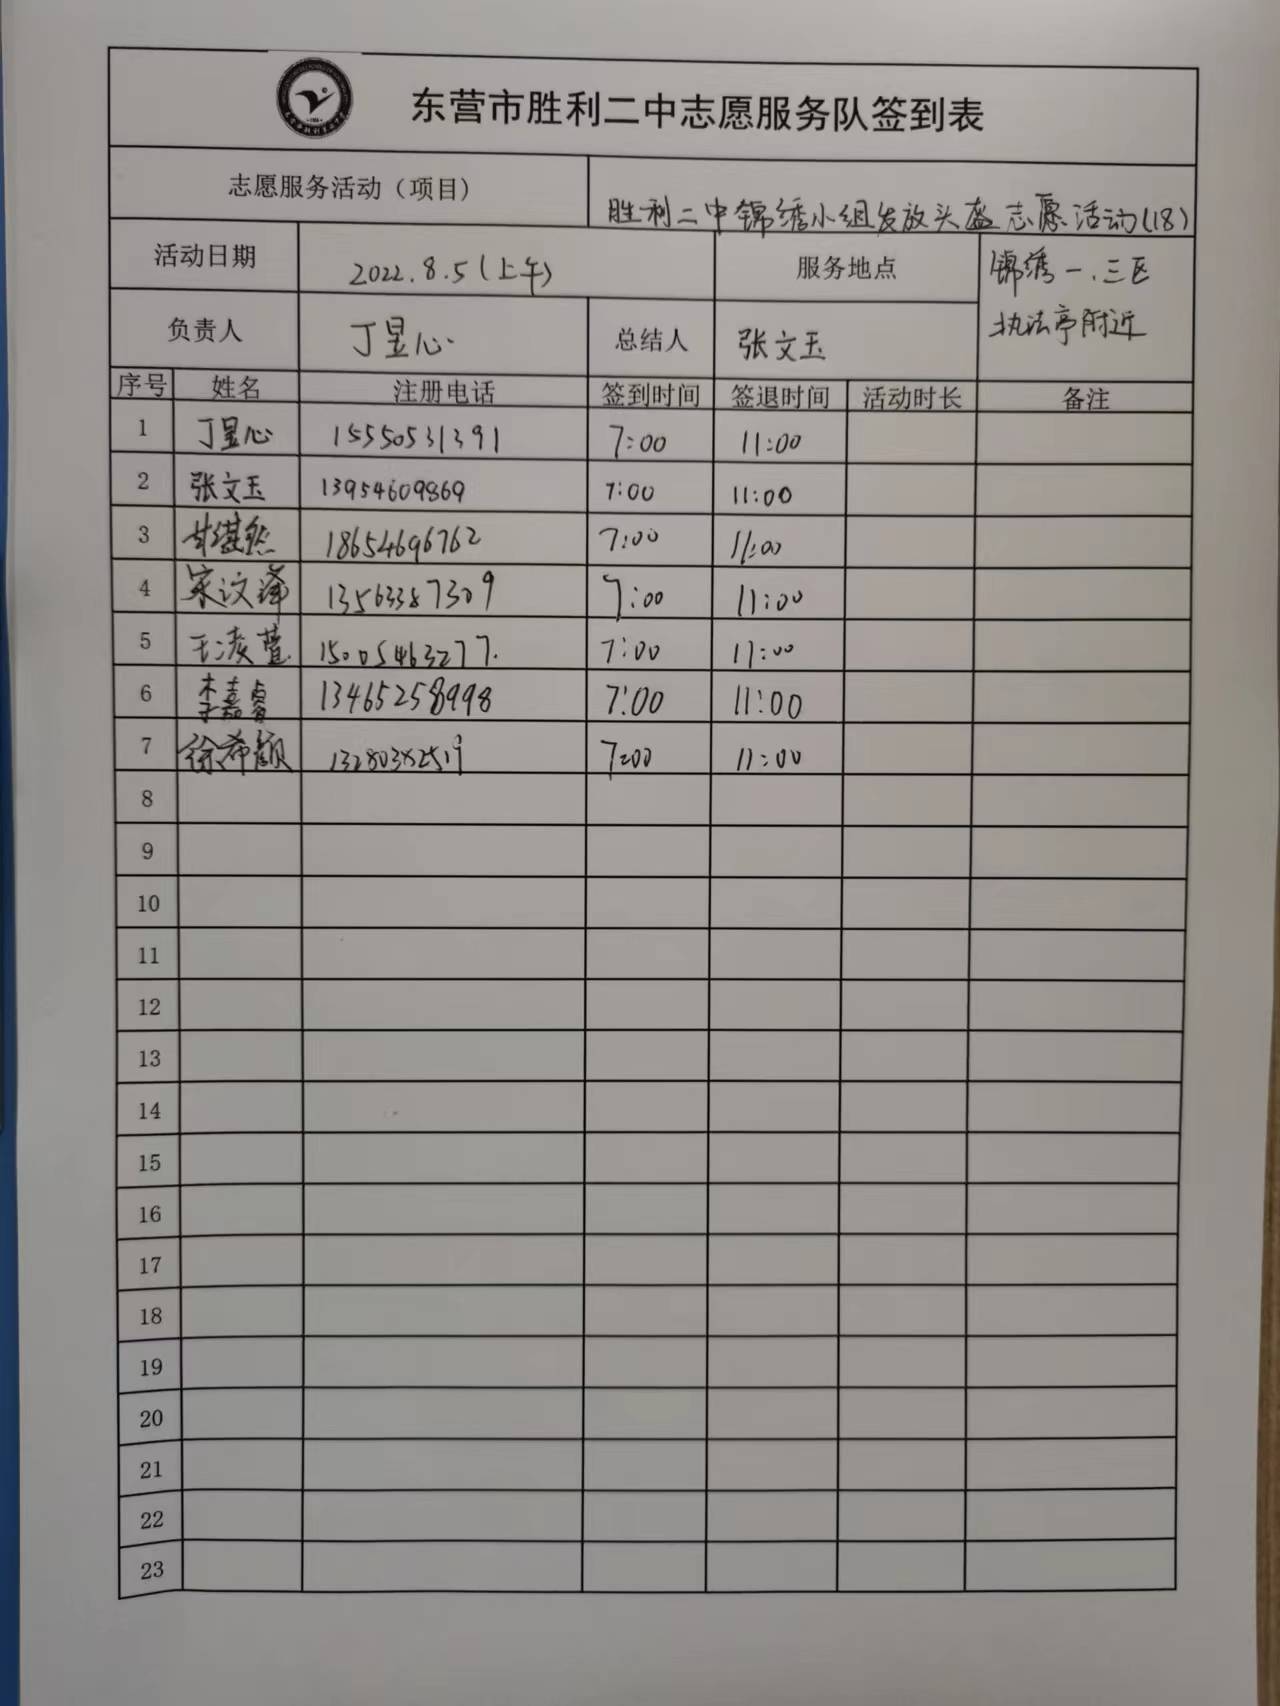 东营市胜利二中志愿服务队签到表
志愿服务活动（项目） 胜利二中锦绣小组发放头盔志愿活动(18)
活动日期 2022.8.5(上午) 服务地点 锦绣一.三区
执法亭附近
负责人 丁昱心 总结人 张文玉
序号 姓名 注册电话 签到时间 签退时间 活动时长 备注
1 丁昱心 15550531391 7:00 11:00
2 张文玉 13954609869 7:00 11:00
3 18654696762 7:00 11:00
4 宋汶泽 13563387309 7:00 11:00
5 王凌萱 15005463277. 7:00 11:00
6 李嘉睿 13465258998 7:00 11:00
7 徐希颜 13280382519 7:00 11:00
8
9
10
11
12
13
14
15
16
17
18
19
20
21
22
23